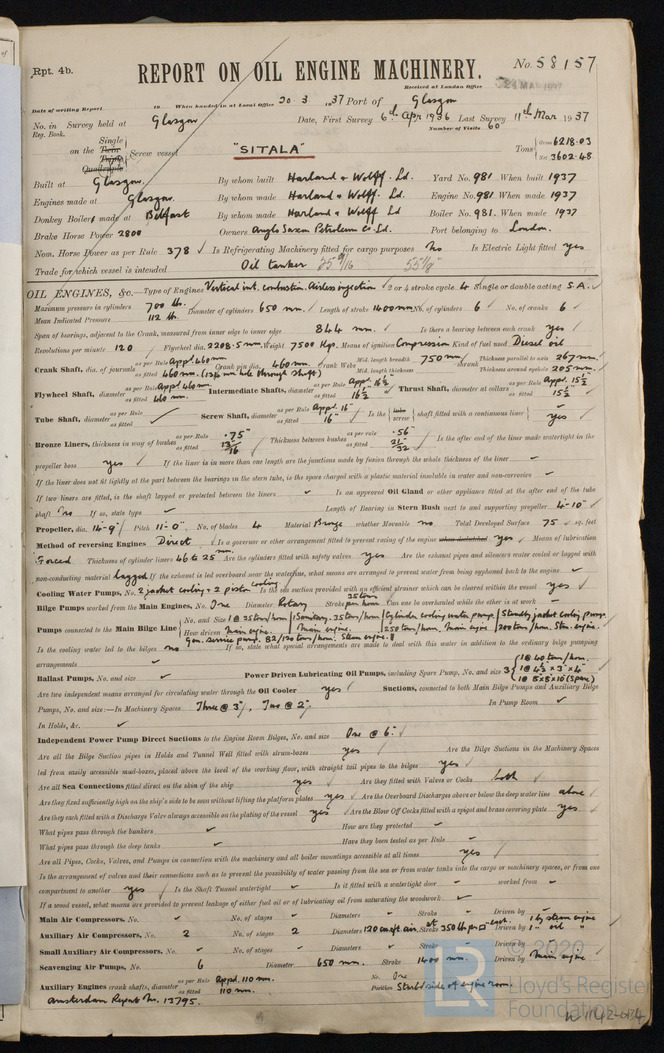 Rpt. 4b.
REPORT ON OIL ENGINE MACHINERY.
No. 58157
Received at London Office
Date of writing Report 19 When handed in at Local Office 20 3 1937 Port of Glasgow
No. in Survey held at Glasgow Date, First Survey 6th Apr 1936 Last Survey 11th Mar 1937
Reg. Book. Number of Visits 60
on the Single Twin Triple Quadruple Screw vessel "SITALA" Tons Gross 6218.03 Net 3602.48
Built at Glasgow. By whom built Harland & Wolff. Ld. Yard No. 981 When built 1937
Engines made at Glasgow. By whom made Harland & Wolff. Ld Engine No. 981 When made 1937
Donkey Boilers made at Belfast By whom made Harland & Wolff Ld Boiler No. 981. When made 1937
Brake Horse Power 2800 Owners Anglo Saxon Petroleum Co. Ld. Port belonging to London.
Nom. Horse Power as per Rule 378 Is Refrigerating Machinery fitted for cargo purposes No Is Electric Light fitted yes
Trade for which vessel is intended Oil tanker
OIL ENGINES, &c.—Type of Engines Vertical int. combustion. Airless injection 2 or 4 stroke cycle 4 Single or double acting S.A.
Maximum pressure in cylinders 700 lb. Diameter of cylinders 650 mm. Length of stroke 1400 mm No. of cylinders 6 No. of cranks 6
Mean Indicated Pressure 112 lb.
Span of bearings, adjacent to the Crank, measured from inner edge to inner edge 844 mm. Is there a bearing between each crank yes
Revolutions per minute 120 Flywheel dia. 2208.5 mm. Weight 7500 Kgs. Means of ignition Compression Kind of fuel used Diesel oil
Crank Shaft, dia. of journals as per Rule Appd. 460 mm as fitted 460 mm. Crank pin dia. 460 mm. Crank Webs Mid. length breadth 750 mm Mid. length thickness shrunk Thickness parallel to axis 267 mm. Thickness around eyehole 205 mm.
Flywheel Shaft, diameter as per Rule Appd 460 mm. as fitted 460 mm. Intermediate Shafts, diameter as per Rule Appd. 16½ as fitted 16½ Thrust Shaft, diameter at collars as per Rule Appd. 15½ as fitted 15½
Tube Shaft, diameter as per Rule as fitted Screw Shaft, diameter as per Rule Appd 16" as fitted 16" Is the tube screw shaft fitted with a continuous liner yes
Bronze Liners, thickness in way of bushes as per Rule .75" as fitted 13/16 Thickness between bushes as per rule .56" as fitted 21/32 Is the after end of the liner made watertight in the
propeller boss yes If the liner is in more than one length are the junctions made by fusion through the whole thickness of the liner
If the liner does not fit tightly at the part between the bearings in the stern tube, is the space charged with a plastic material insoluble in water and non-corrosive
If two liners are fitted, is the shaft lapped or protected between the liners Is an approved Oil Gland or other appliance fitted at the after end of the tube
shaft No If so, state type Length of Bearing in Stern Bush next to and supporting propeller 4'-10"
Propeller, dia. 14'-9" Pitch 11'-0" No. of blades 4 Material Bronze whether Moveable no Total Developed Surface 75 sq. feet
Method of reversing Engines Direct Is a governor or other arrangement fitted to prevent racing of the engine when declutched yes Means of lubrication
Forced Thickness of cylinder liners 46 to 25 mm. Are the cylinders fitted with safety valves yes Are the exhaust pipes and silencers water cooled or lagged with
non-conducting material lagged If the exhaust is led overboard near the waterline, what means are arranged to prevent water from being syphoned back to the engine
Cooling Water Pumps, No. 2 jacket cooling & 2 piston cooling Is the sea suction provided with an efficient strainer which can be cleared within the vessel yes
Bilge Pumps worked from the Main Engines, No. One Diameter Rotary Stroke 35 tons per hour Can one be overhauled while the other is at work
Pumps connected to the Main Bilge Line No. and Size 1 @ 35 tons/hour Sanitary. 35 tons/hour Cylinder cooling water pumps Standby jacket cooling pump
How driven Main engine. Main engine. 250 tons/hour. Main engine 200 tons/hour. Stm. engine.
Gen. service pump. 82/120 tons/hour. Steam engine.
Is the cooling water led to the bilges no If so, state what special arrangements are made to deal with this water in addition to the ordinary bilge pumping
arrangements
Ballast Pumps, No. and size Power Driven Lubricating Oil Pumps, including Spare Pump, No. and size 3 1 @ 40 tons/hour. 1 @ 4½" x 3" x 4" 1 @ 8 x 8 x 10 (Spare)
Are two independent means arranged for circulating water through the Oil Cooler yes Suctions, connected to both Main Bilge Pumps and Auxiliary Bilge
Pumps, No. and size:—In Machinery Spaces Three @ 3½, Two @ 2" In Pump Room
In Holds, &c.
Independent Power Pump Direct Suctions to the Engine Room Bilges, No. and size One @ 6"
Are all the Bilge Suction pipes in Holds and Tunnel Well fitted with strum-boxes yes Are the Bilge Suctions in the Machinery Spaces
led from easily accessible mud-boxes, placed above the level of the working floor, with straight tail pipes to the bilges yes
Are all Sea Connections fitted direct on the skin of the ship yes Are they fitted with Valves or Cocks both
Are they fixed sufficiently high on the ship's side to be seen without lifting the platform plates yes Are the Overboard Discharges above or below the deep water line above
Are they each fitted with a Discharge Valve always accessible on the plating of the vessel yes Are the Blow Off Cocks fitted with a spigot and brass covering plate yes
What pipes pass through the bunkers How are they protected
What pipes pass through the deep tanks Have they been tested as per Rule
Are all Pipes, Cocks, Valves, and Pumps in connection with the machinery and all boiler mountings accessible at all times yes
Is the arrangement of valves and their connections such as to prevent the possibility of water passing from the sea or from water tanks into the cargo or machinery spaces, or from one
compartment to another yes Is the Shaft Tunnel watertight Is it fitted with a watertight door worked from
If a wood vessel, what means are provided to prevent leakage of either fuel oil or of lubricating oil from saturating the woodwork
Main Air Compressors, No. No. of stages Diameters Stroke Driven by
Auxiliary Air Compressors, No. 2 No. of stages 2 Diameters 120 cu.ft. air at Stroke 350 lb pr □" each. Driven by 1 by steam engine 1 " oil "
Small Auxiliary Air Compressors, No. No. of stages Diameters Stroke Driven by
Scavenging Air Pumps, No. 6 Diameter 650 mm. Stroke 1400 mm. Driven by Main engine
Auxiliary Engines crank shafts, diameter as per Rule Appd. 110 mm. as fitted 110 mm. No. One Position Starbd side of engine room
Amsterdam Report No. 13795.
© 2020
LR Lloyd's Register
Foundation